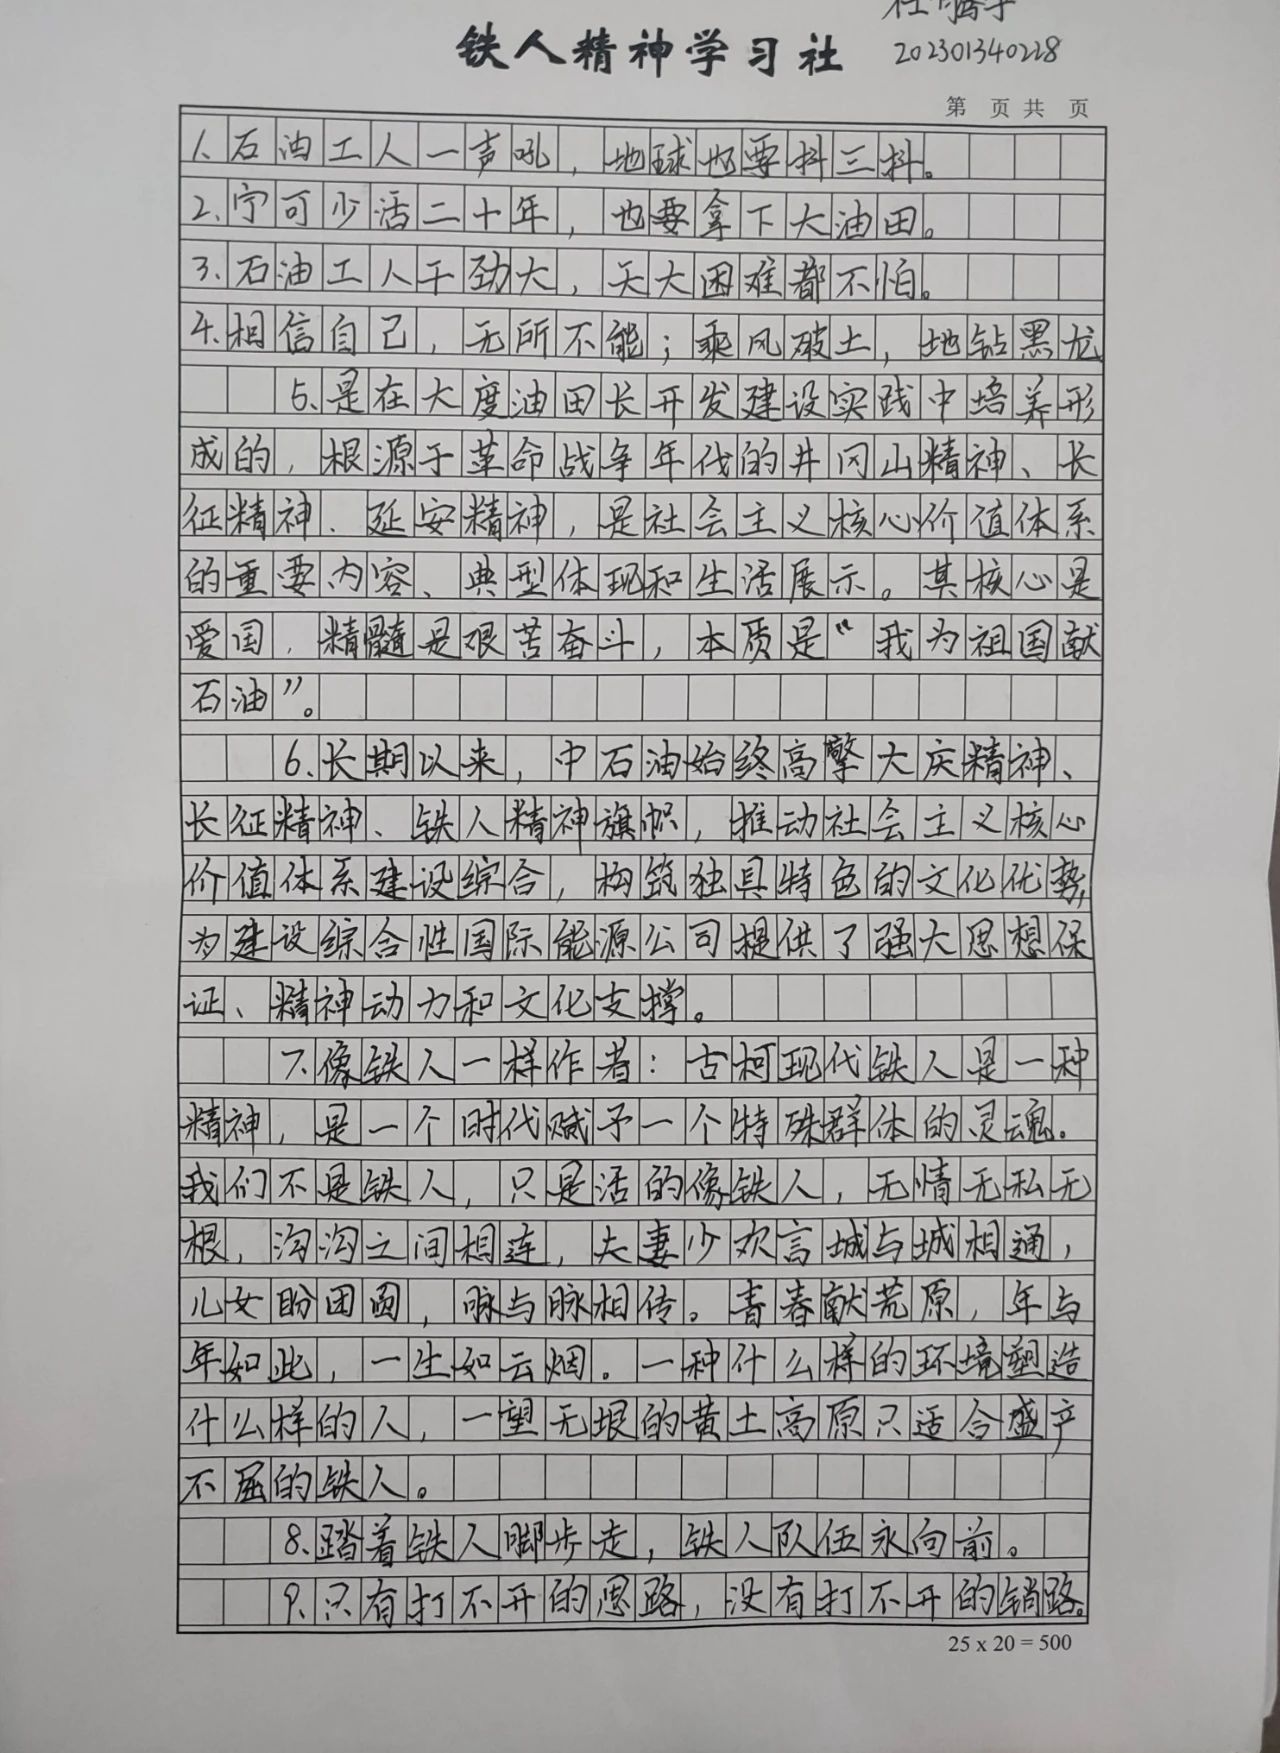 铁人精神学习社
202301340228
第 页 共 页
1.石油工人一声吼，地球也要抖三抖。
2.宁可少活二十年，也要拿下大油田。
3.石油工人干劲大，天大困难都不怕。
4.相信自己，无所不能；乘风破土，地钻黑龙
5.是在大度油田长开发建设实践中培养形
成的，根源于革命战争年代的井冈山精神、长
征精神、延安精神，是社会主义核心价值体系
的重要内容、典型体现和生活展示。其核心是
爱国，精髓是艰苦奋斗，本质是“我为祖国献
石油”。
6.长期以来，中石油始终高擎大庆精神、
长征精神、铁人精神旗帜，推动社会主义核心
价值体系建设综合，构筑独具特色的文化优势，
为建设综合性国际能源公司提供了强大思想保
证、精神动力和文化支撑。
7.像铁人一样作者：古柯现代铁人是一种
精神，是一个时代赋予一个特殊群体的灵魂。
我们不是铁人，只是活的像铁人，无情无私无
根，沟沟之间相连，夫妻少欢言城与城相通，
儿女盼团圆，脉与脉相传。青春献荒原，年与
年如此，一生如云烟。一种什么样的环境塑造
什么样的人，一望无垠的黄土高原只适合盛产
不屈的铁人。
8.踏着铁人脚步走，铁人队伍永向前。
9.只有打不开的思路，没有打不开的销路。
25 x 20 = 500